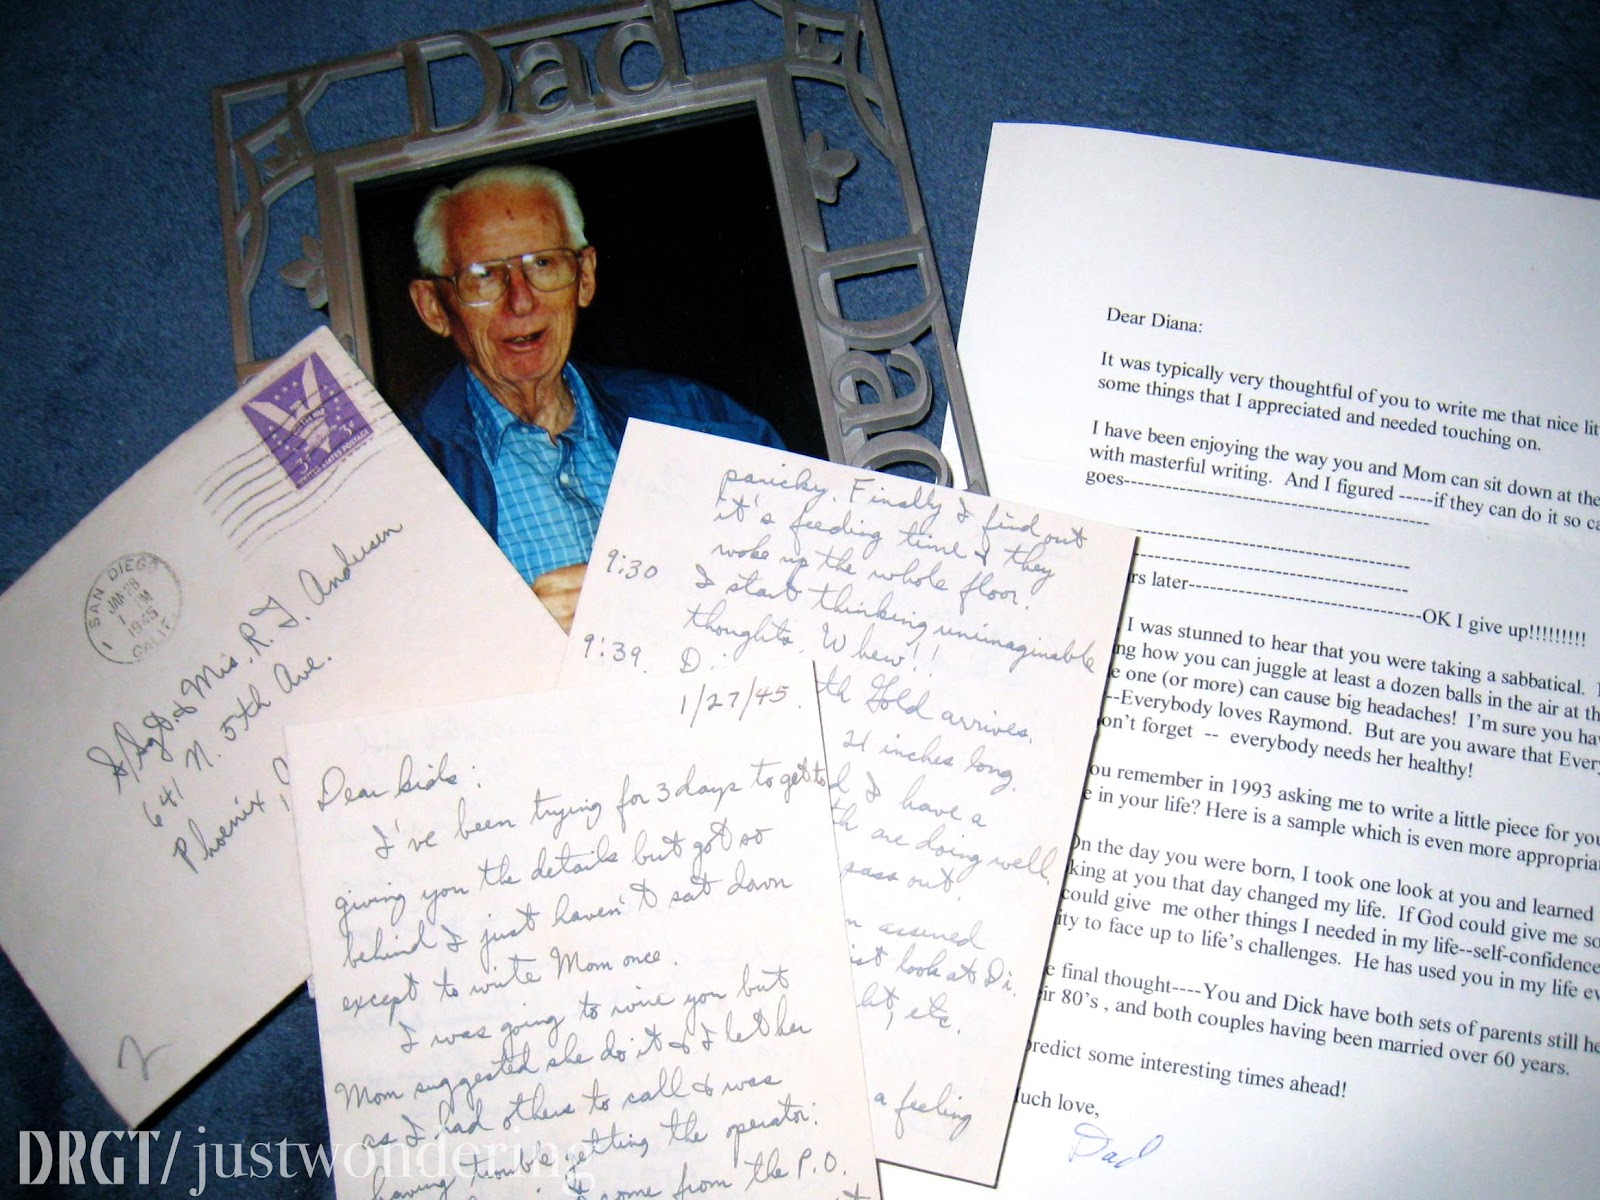 Dad
Dad
UNITED STATES POSTAGE
3¢
SAN DIEGO
JAN 28
1 PM
1945
CALIF.
S/Sgt. & Mrs. R. J. Andersen
641 N. 5th Ave.
Phoenix,
2
panicky. Finally I find out
it's feeding time & they
woke up the whole floor.
9:30 I start thinking unimaginable
thoughts. Whew!!
9:39. D
th Gold arrives.
21 inches long.
d I have a
th are doing well.
pass out.
m assured
ist look at Di.
ht, etc.
a feeling
1/27/45.
Dear kids:
I've been trying for 3 days to get to
giving you the details but got so
behind I just haven't sat down
except to write Mom once.
I was going to wire you but
Mom suggested she do it & I let her
as I had others to call & was
having trouble getting the operator.
come from the P.O.
Dear Diana:
It was typically very thoughtful of you to write me that nice lit
some things that I appreciated and needed touching on.
I have been enjoying the way you and Mom can sit down at the
with masterful writing. And I figured -----if they can do it so ca
goes----------------------------------------
----------------------------------------
----------------------------------------
rs later------------------------------OK I give up!!!!!!!!!
I was stunned to hear that you were taking a sabbatical.
ng how you can juggle at least a dozen balls in the air at th
e one (or more) can cause big headaches! I'm sure you hav
--Everybody loves Raymond. But are you aware that Every
on't forget -- everybody needs her healthy!
ou remember in 1993 asking me to write a little piece for you
e in your life? Here is a sample which is even more appropriat
On the day you were born, I took one look at you and learned
king at you that day changed my life. If God could give me so
could give me other things I needed in my life--self-confidence
ity to face up to life's challenges. He has used you in my life ev
e final thought----You and Dick have both sets of parents still he
eir 80's , and both couples having been married over 60 years.
predict some interesting times ahead!
Much love,
Dad
DRGT/justwondering